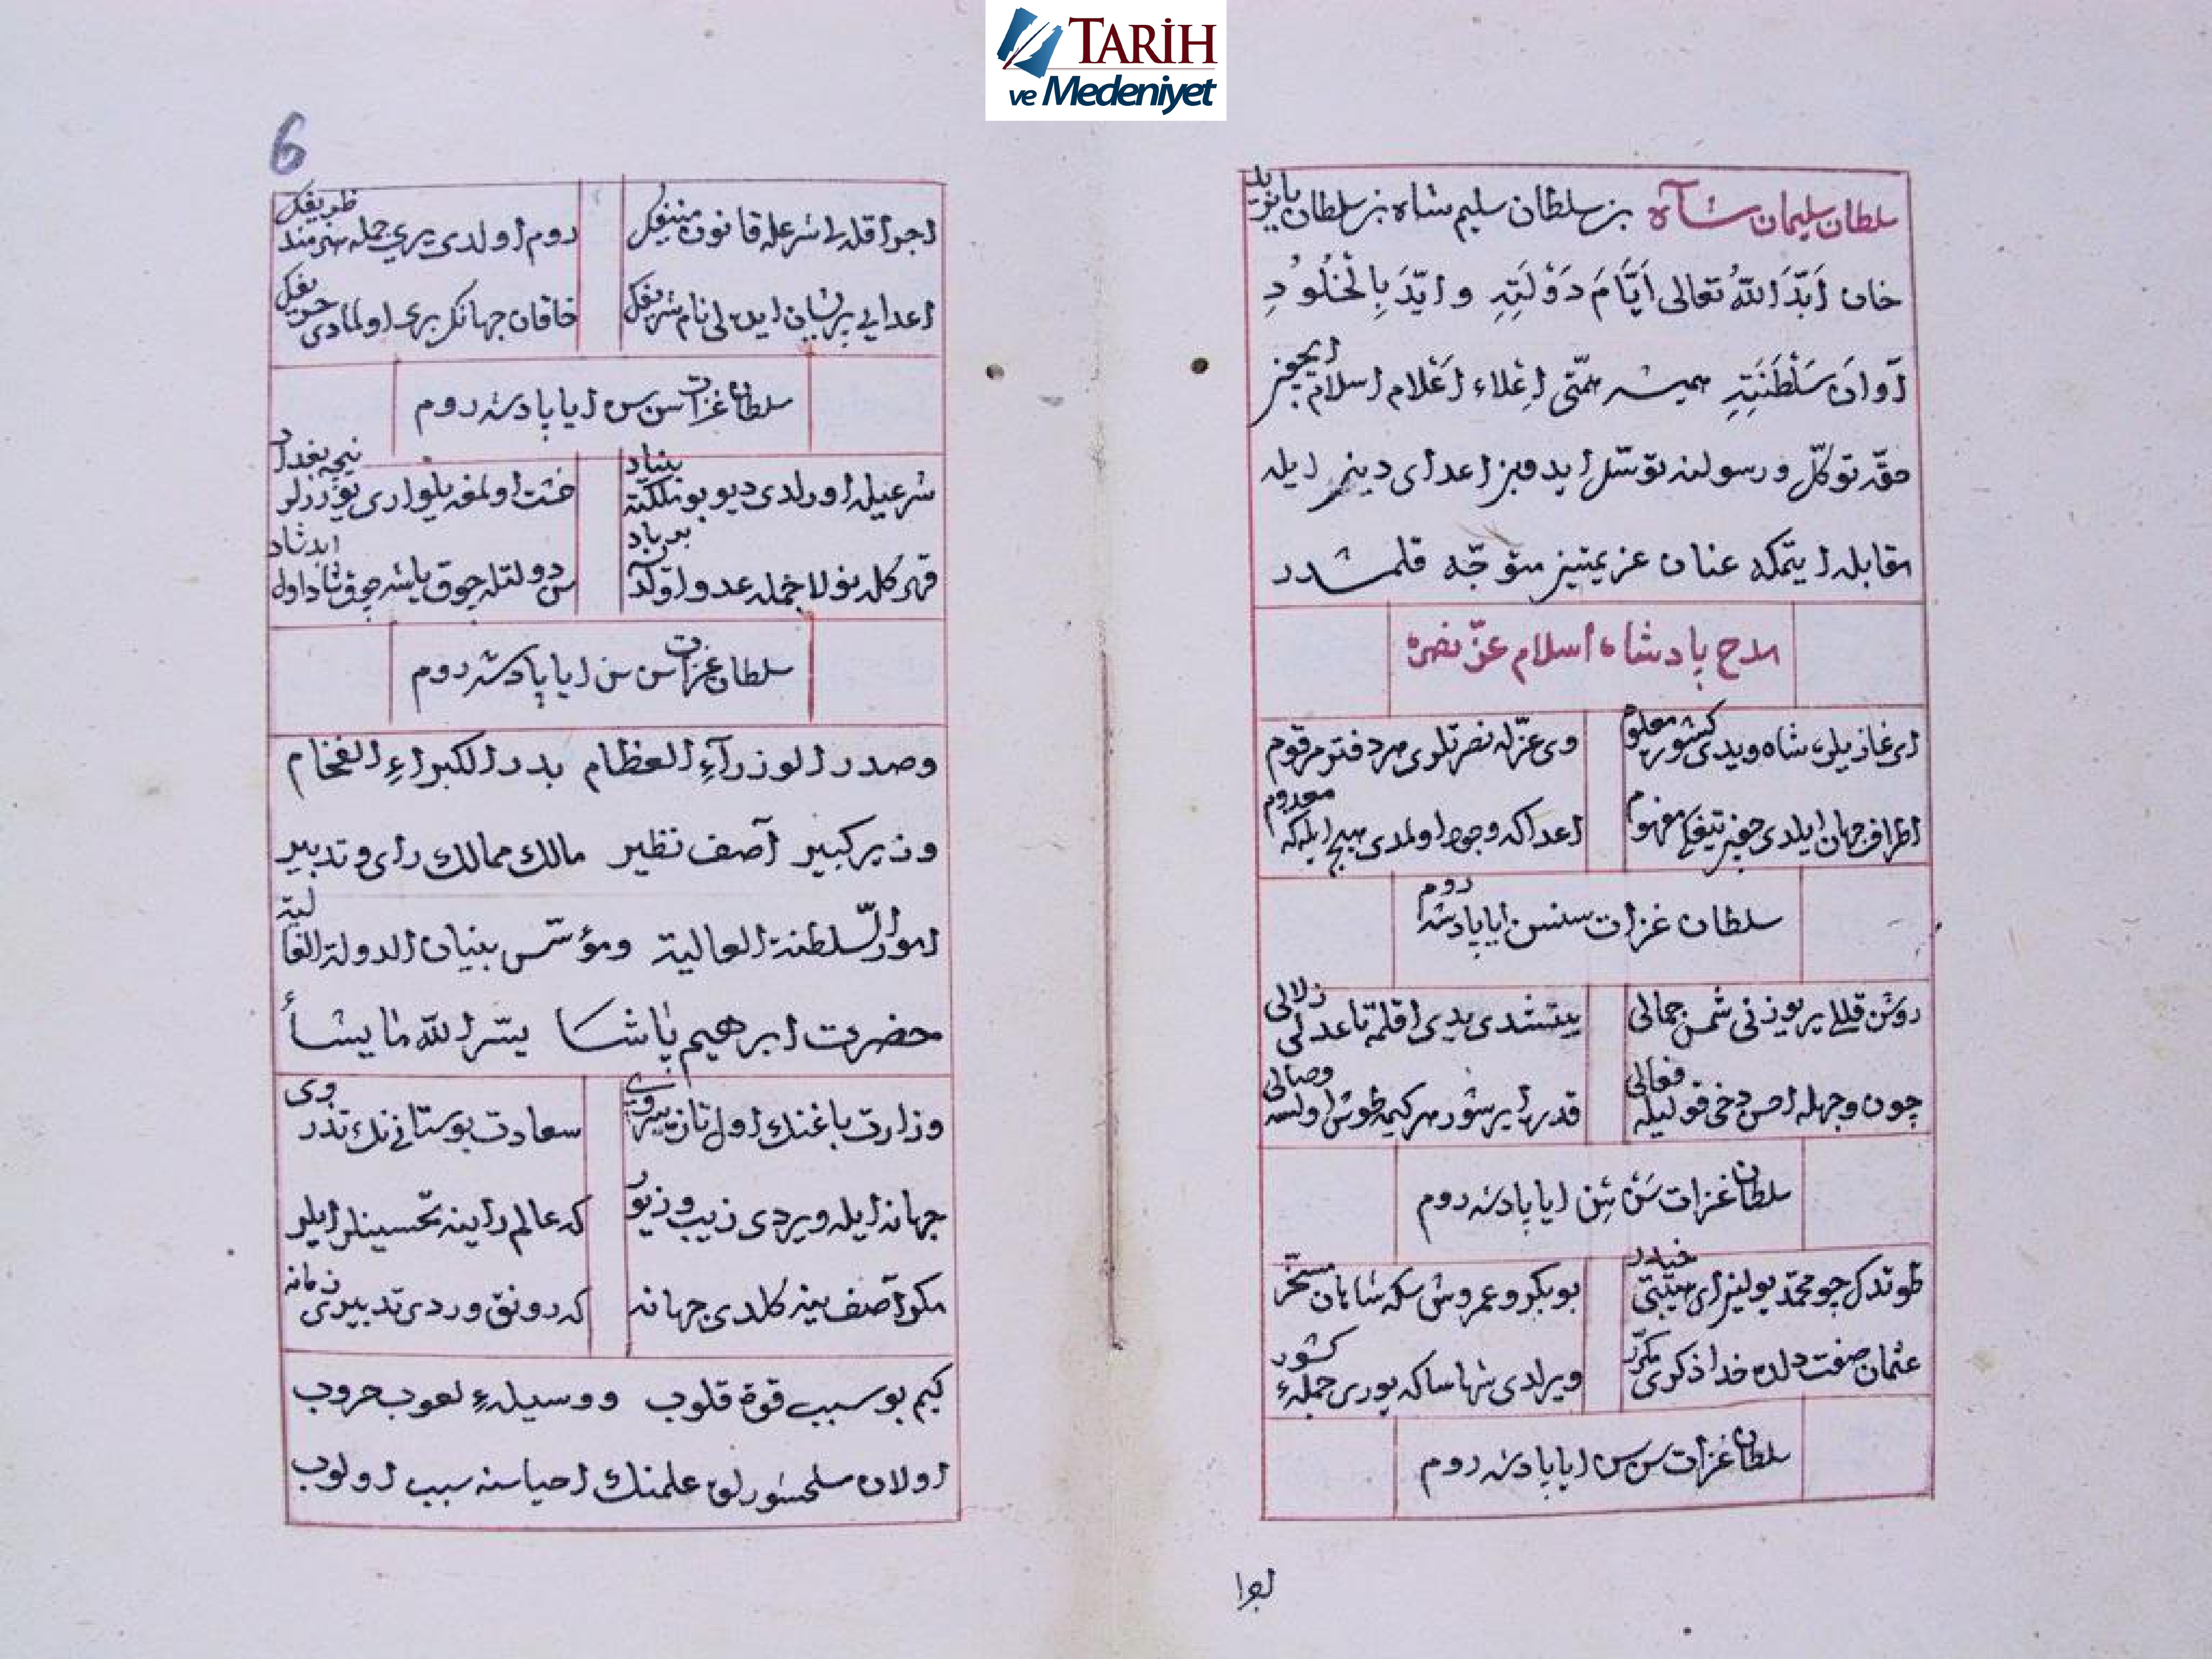 TARİH
ve Medeniyet
سلطان سلیمان شاه بن سلطان سلیم شاه بن سلطان بایزید
خان اَبَّدَ اللهُ تعالی اَیَّامَ دَوْلَتِهِ و ایَّدَ بِالْخُلُودِ
آوانَ سَلْطَنَتِهِ همیشه همّتی اِعْلاء اَعْلام اسلام ایچون
حقّه توکّل و رسولنه توسّل ایدوبن اعدای دینی ایله
مقابله ایتمکه عنان عزیمتین متوجّه قلمشدر
مدح پادشاه اسلام عزّ نصره
ای غازیلری شاه ویدی کشور معلوم
وی عزّله نصرتلری هر دفتر مرقوم
اطراف جهان ایلدی
اعدا که وجودی اولمدی هیچ ایله که معدوم
سلطان غزات سنسن ایا پادشه روم
روشن قللی یر یوزنی شمس جمالی
یتشدی یدی اقلمه تا عدلی زلالی
چون وجهله احسن دخی قولیله فعالی
قدر ایریشور هر کیمه طوش اولسه وصالی
سلطان غزات سَن سِن ایا پادشه روم
طوتدک چو محمّد یولین ای هیبتی حیدر
بوبکر و عمروش سکه شاهان مسخّر
عثمان صفت دلده خدا ذکری مکرّر
ویرلدی شها ساکه یوری جملهٔ کشور
سلطان غزات سن سن ایا پادشه روم
اجرا
6
اجرا قله لی شرعله قانون منیفک
روم اولدی یری جمله هنرمند ظریفک
اعدایی پریشان ایده لی نام شریفک
خاقان جهانکر بری اولمادی حریفک
سلطان غزات سن سن ایا پادشه روم
شرعیله اورلدی دیو بو ملکته بنیاد
خشت اولمغه یلواری یوزر لر نیجه بغداد
قهرکله بولا جمله عدو
بس دولتله چوق یاشه چوق
سلطان غزات سن سن ایا پادشه روم
وصدر الوزرآءِ العظام بدر الکبراءِ الفخام
وزیر کبیر آصف نظیر مالک ممالک رای و تدبیر
امور السّلطنة العالیة ومؤسّس بنیان الدولة الغالیة
حضرت ابرهیم پاشا یسّر الله ما یشأ
وزارت باغنک اول تازه سروی
سعادت بوستانی نک تذروی
جهانه ایله ویردی زیب و زیور
که عالم راینه تحسینلر ایلر
مکر آصف ینه کلدی جهانه
که رونق وردی تدبیری زمانه
کیم بو سبب قوة قلوب و وسیلهء لعوب حروب
اولان سلحشورلق علمنک احیاسنه سبب اولوب